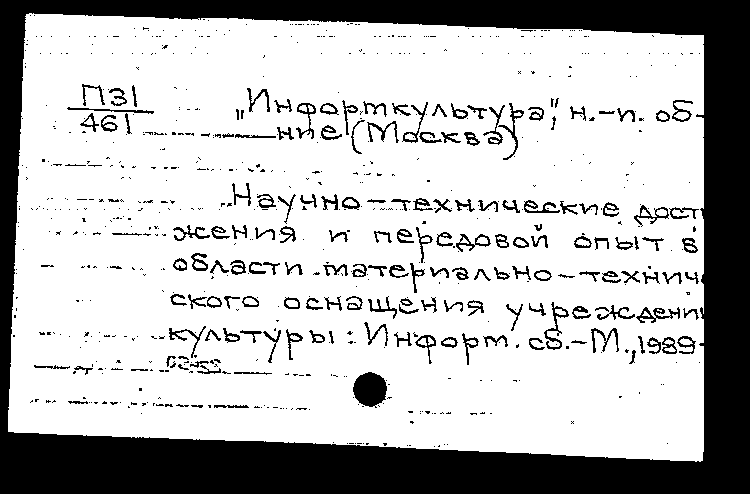 П31
461
„Информкультура", н.-п. об-
ние (Москва)
Научно-технические дости
жения и передовой опыт в
области материально-техниче
ского оснащения учреждени
культуры: Информ. сб.-М., 1989-